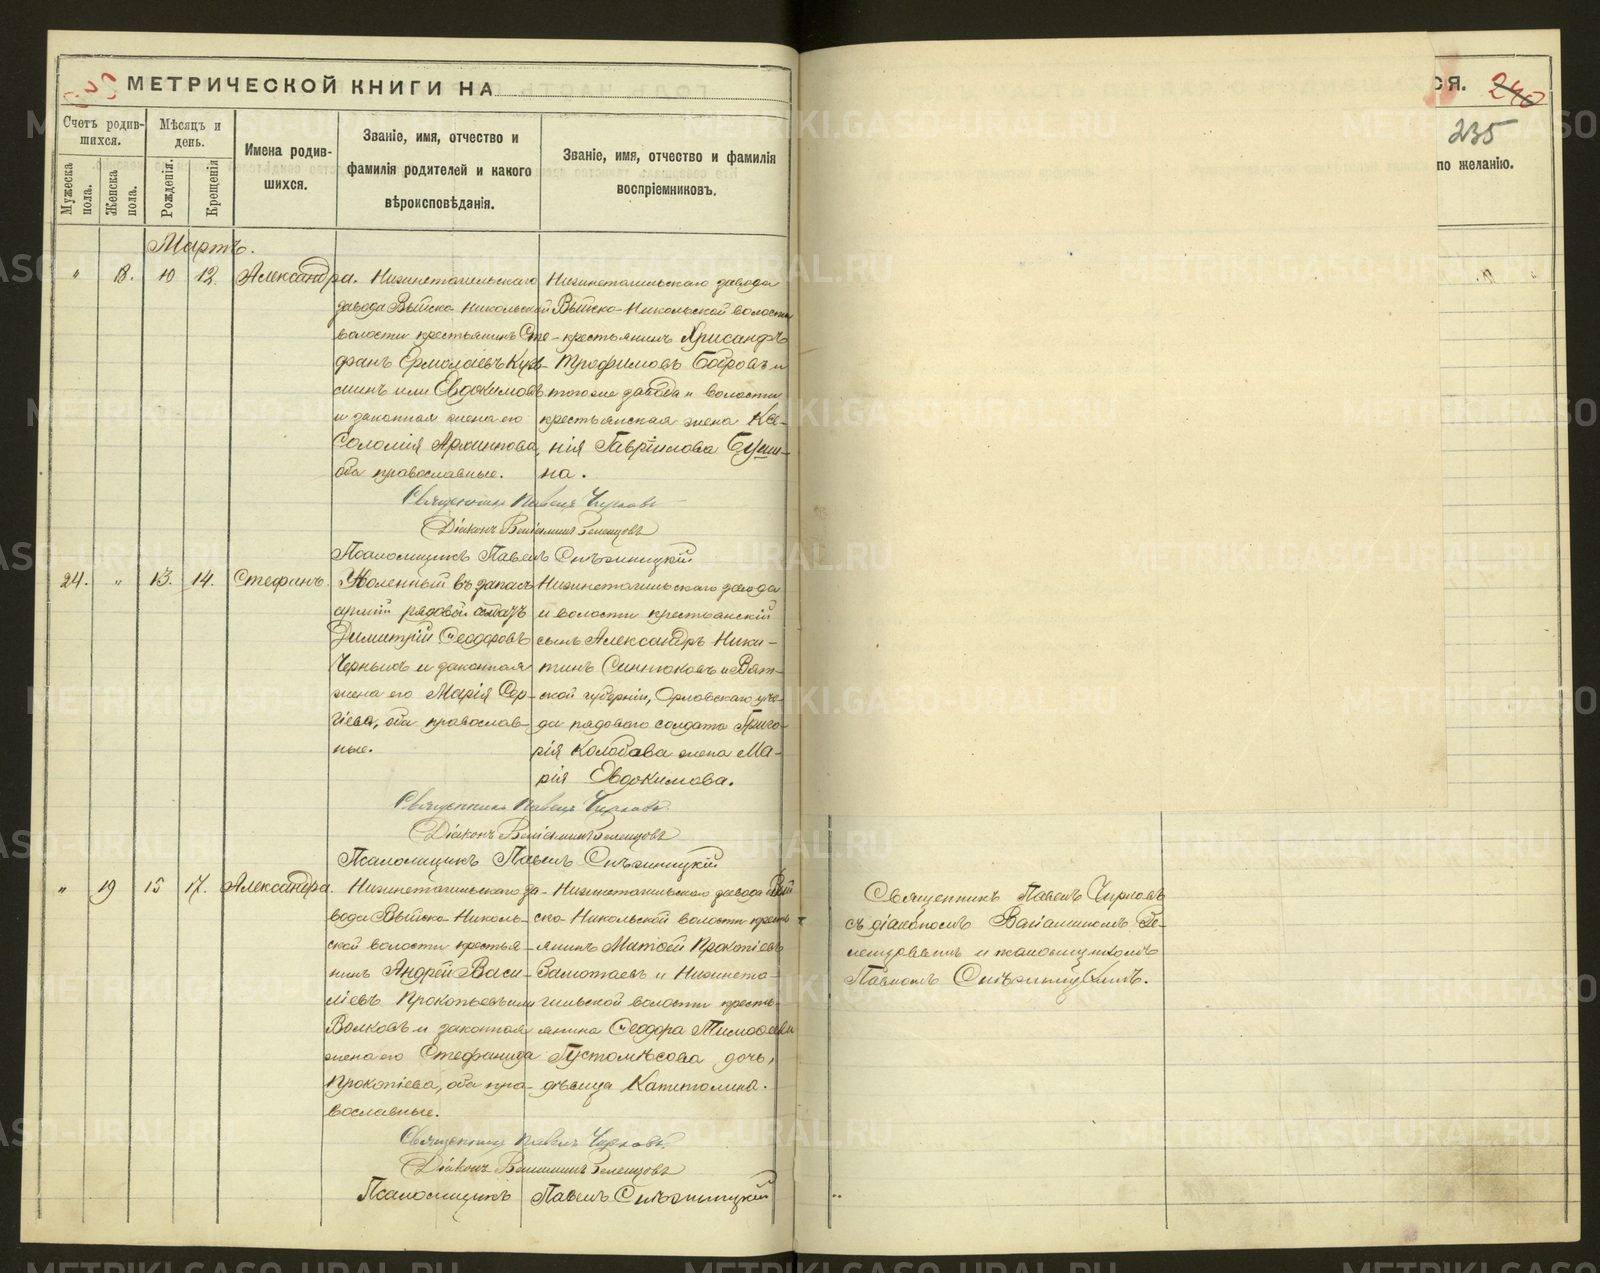 МЕТРИЧЕСКОЙ КНИГИ НА
Счетъ родив-
шихся.
Мѣсяцъ и
день.
Мужеска
пола.
Женска
пола.
Рожденія.
Крещенія
Имена родив-
шихся.
Званіе, имя, отчество и
фамилія родителей и какого
вѣроисповѣданія.
Званіе, имя, отчество и фамилія
воспріемниковъ.
Мартъ.
" 18. 10 12. Александра.
Нижнетагильскаго
завода Выйско-Никольской
волости крестьянинъ Сте-
фанъ Ермолаевъ Кузь-
минъ или Евдокимовъ
и законная жена его
Соломія Архиппова,
оба православные.
Нижнетагильскаго завода
Выйско-Никольской волости
крестьянинъ Хрисанфъ
Трофимовъ Бобровъ и
тогоже завода и волости
крестьянская жена Ксе-
нія Гавріилова
на.
Священникъ Павелъ Чирковъ
Діаконъ Веніаминъ
Псаломщикъ Павелъ Снѣжницкій
24. " 13. 14. Стефанъ.
Уволенный въ запасъ
арміи рядовой солдатъ
Димитрій Ѳеодоровъ
Черныхъ и законная
жена его Марія Сер-
гіева, оба православ-
ные.
Нижнетагильскаго завода
и волости крестьянскій
сынъ Александръ Ники-
тинъ и Вят-
ской губерніи, Орловскаго уѣз-
да рядоваго солдата Григо-
рія Колобова жена Ма-
рія Евдокимова.
Священникъ Павелъ Чирковъ
Діаконъ Веніаминъ
Псаломщикъ Павелъ Снѣжницкій
" 19 15 17. Александра.
Нижнетагильскаго за-
вода Выйско-Николь-
ской волости крестья-
нинъ Андрей Васи-
ліевъ Прокопьевъ или
Волковъ и законная
жена его Стефанида
Прокопіева, оба пра-
вославные.
Нижнетагильскаго завода Вый-
ско-Никольской волости кресть-
янинъ Матѳей Прокопіевъ
Замотаевъ и Нижнета-
гильской волости кресть-
янина Ѳеодора Тимоѳеева
Густомѣсова дочь,
дѣвица Капитолина.
Священникъ Павелъ Чирковъ
Діаконъ Веніаминъ
Псаломщикъ Павелъ Снѣжницкій
СЯ. 240
235
по желанію.
Священникъ Павелъ Чирковъ
съ діакономъ Веніаминомъ
и псаломщикомъ
Павломъ Снѣжницкимъ.
METRIKI.GASO-URAL.RU